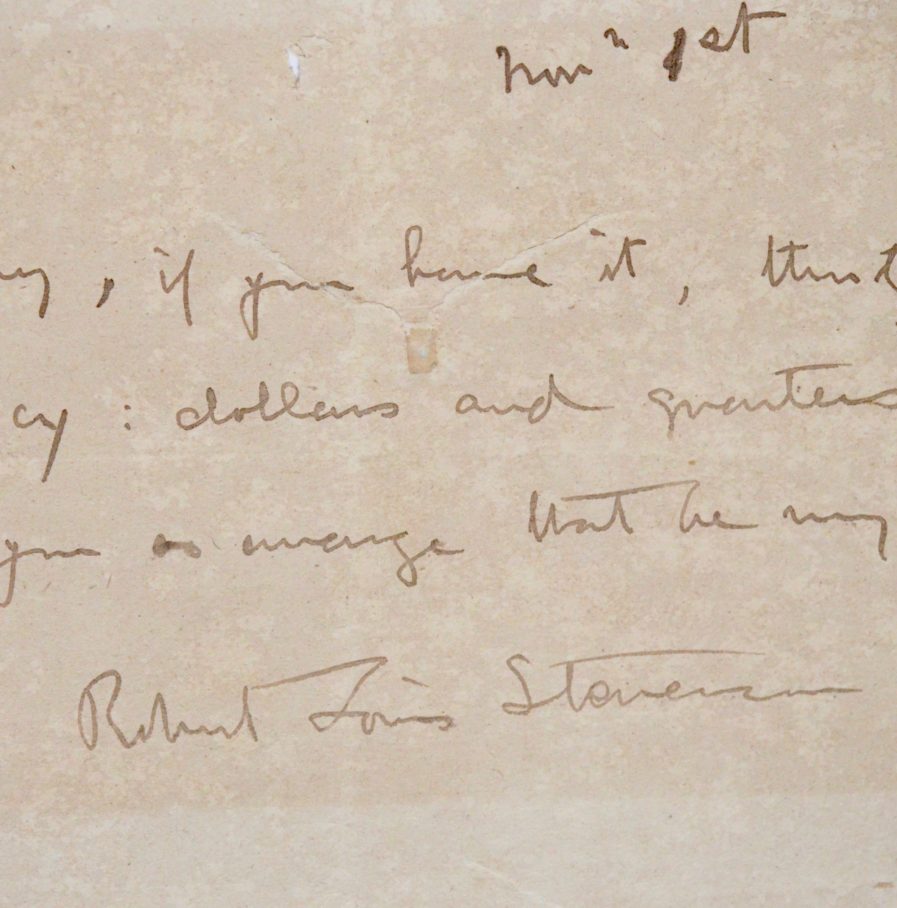 Novr 1st
ey, if you have it, thirt
cy: dollars and quarters
you so arrange that he may
Robert Louis Stevenson